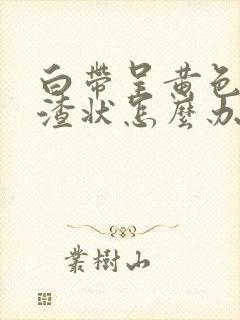 白帶呈黄色
渣状怎麼办
葉樹山